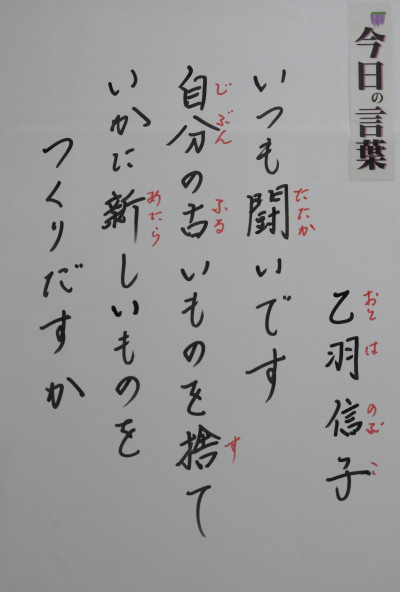 今日の言葉
乙羽信子
おとはのぶこ
いつも闘いです
たたか
自分の古いものを捨て
じぶんふるす
いかに新しいものを
あたら
つくりだすか